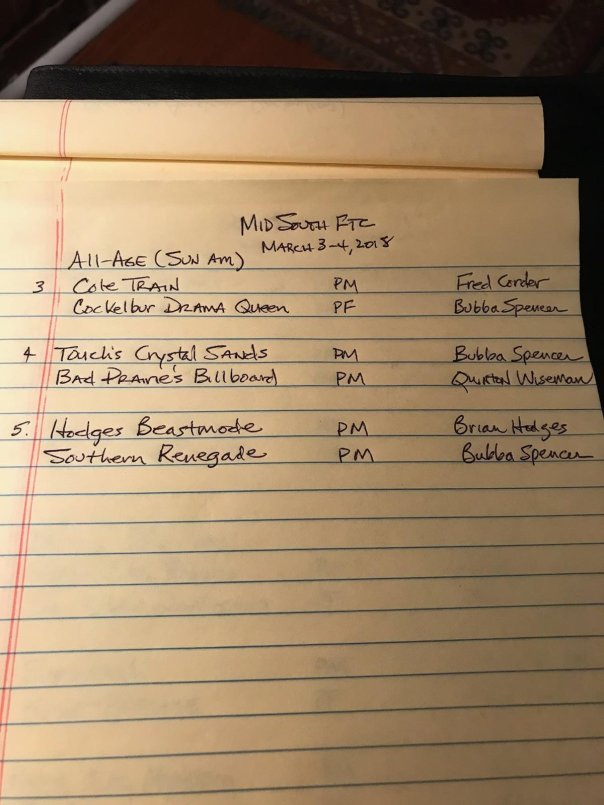 MID SOUTH FTC
MARCH 3-4, 2018
All-AGE (SUN AM)
3 Cole TRAIN PM Fred Corder
Cockelbur DRAMA Queen PF Bubba Spencer
4 Touch's Crystal SANDS PM Bubba Spencer
BAD PRAIRIE's Billboard PM Quinton Wiseman
5. Hodges Beastmode PM Brian Hodges
Southern Renegade PM Bubba Spencer